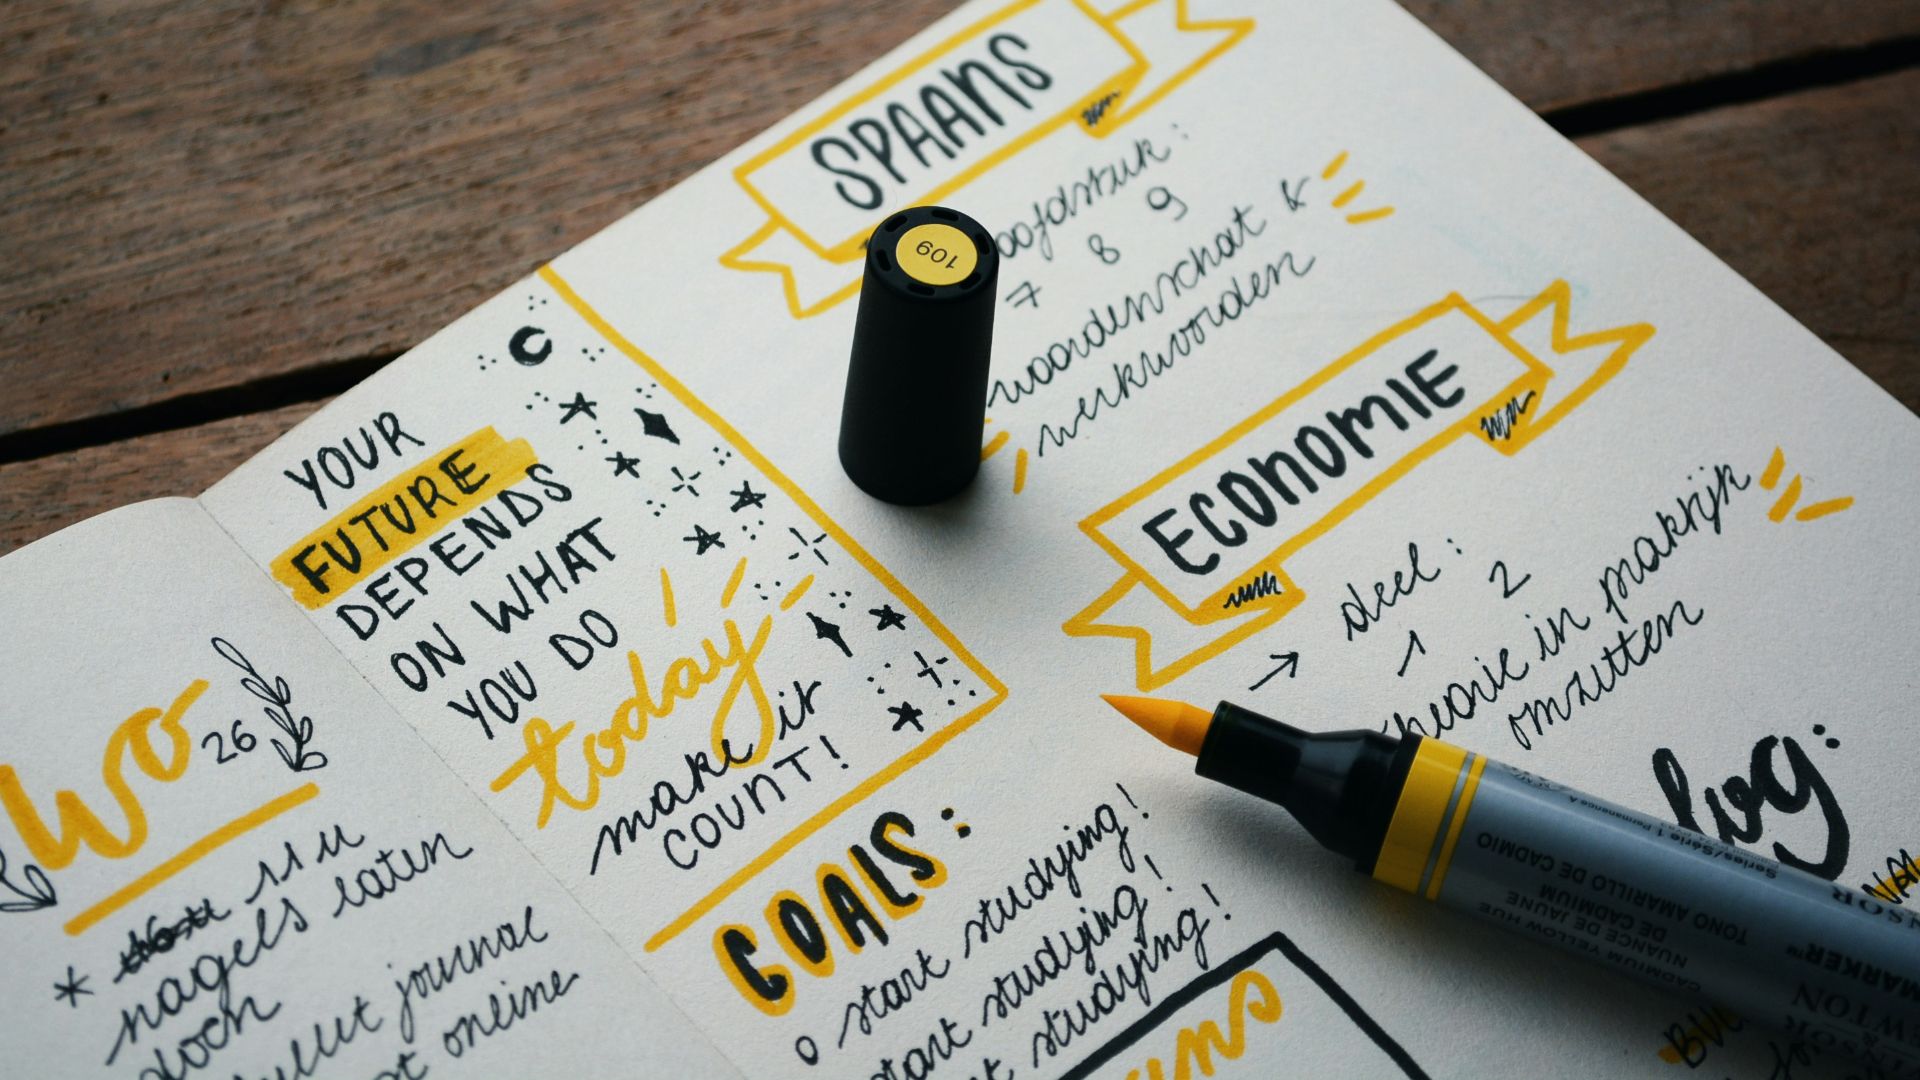 wo 26
* 11 u
nagels laten
doen
bullet journal
online
YOUR
FUTURE
DEPENDS
ON WHAT
YOU DO
today
make it
COUNT!
GOALS:
o start studying!
start studying!
studying!
SPAANS
hoofdstuk:
7 8 9
woordenschat &
werkwoorden
ECONOMIE
→ deel:
1 2
theorie in praktijk
omzetten
log:
109
Series/Série 1 Permanence A
CADMIUM YELLOW HUE
NUANCE DE JAUNE
DE CADMIUM
TONO AMARILLO DE CADMIO
MARKER™